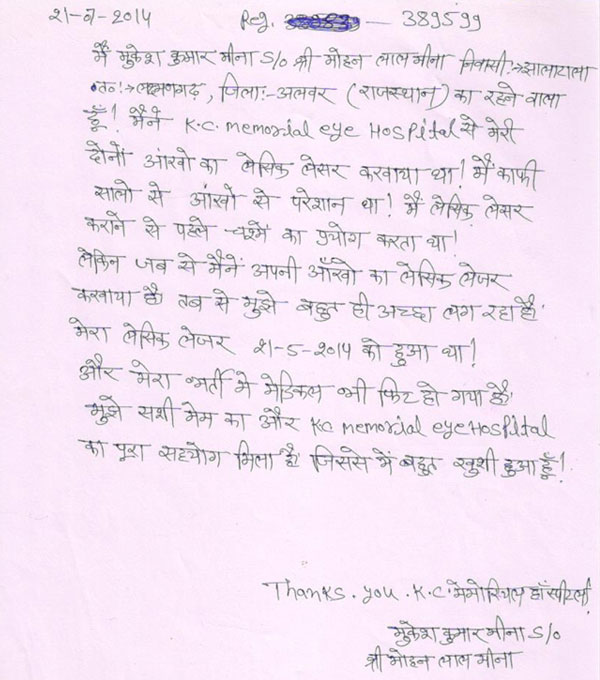 21-7-2014 Reg. - 389599
मैं मुकेश कुमार मीना S/o श्री मोहन लाल मीना निवासी:→झालाटाला
त०:→लक्ष्मणगढ़, जिला:-अलवर (राजस्थान) का रहने वाला
हूँ! मैंने K.C. memorial eye HOSPital से मेरी
दोनों आंखो का लेसिक लेसर करवाया था! मैं काफी
सालो से आंखो से परेशान था! मैं लेसिक लेसर
कराने से पहले चश्में का प्रयोग करता था!
लेकिन जब से मैनें अपनी आँखो का लेसिक लेजर
करवाया है। तब से मुझे बहुत ही अच्छा लग रहा है।
मेरा लेसिक लेजर 21-5-2014 को हुआ था!
और मेरा भर्ती मे मेडिकल भी फिट हो गया है।
मुझे सशी मेम का और KC memorial eye HOSPital
का पूरा सहयोग मिला है। जिससे में बहुत खुशी हुआ हूँ!
Thanks. you. K.C. मेमोरियल हॉस्पीटल
मुकेश कुमार मीना S/o
श्री मोहन लाल मीना